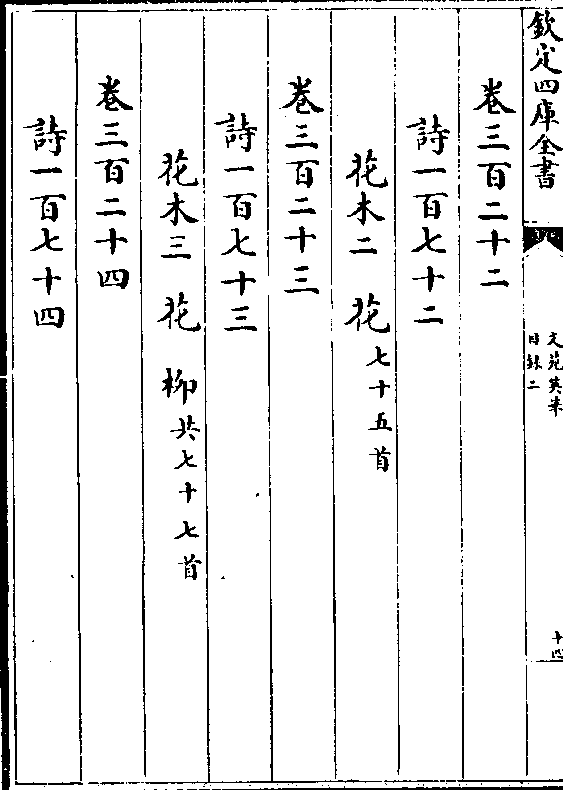 欽定四庫全書
文苑英華
目錄二
十四
卷三百二十二
詩一百七十二
花木二 花七十五首
卷三百二十三
詩一百七十三
花木三 花 柳共七十七首
卷三百二十四
詩一百七十四